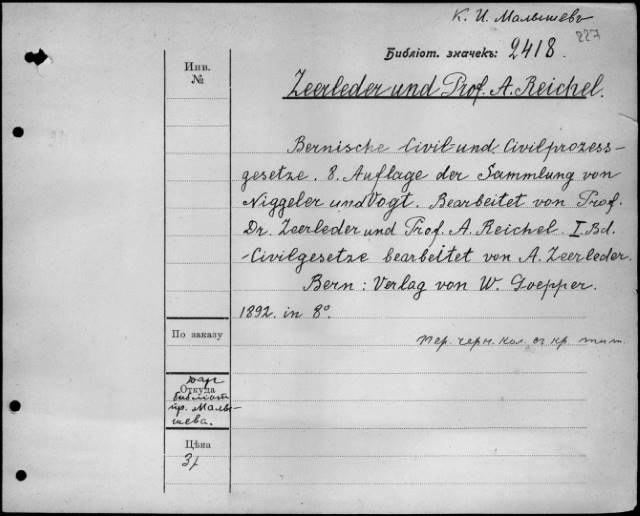 К. И. Малышевъ
227
Библіот. значекъ: 2418.
Инв.
№
Zeerleder und Prof. A. Reichel.
Bernische Civil- und Civilprozess-
gesetze. 8. Auflage der Sammlung von
Niggeler und Vogt. Bearbeitet von Prof.
Dr. Zeerleder und Prof. A. Reichel. I. Bd.
-Civilgesetze bearbeitet von A. Zeerleder.
Bern: Verlag von W. Goepper.
1892. in 8°.
По заказу
пер. черн. кол. съ кр. тит.
дар
Откуда
библіот
пр. Малы-
шева.
Цѣна
3р